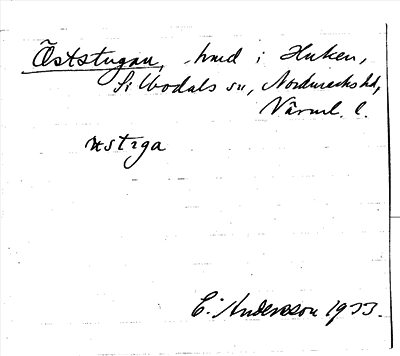 Öststugan, hmd i Huken,
Silbodals sn, Nordmarks hd,
Värml. l.
östɜga
E. Andersson 1933.